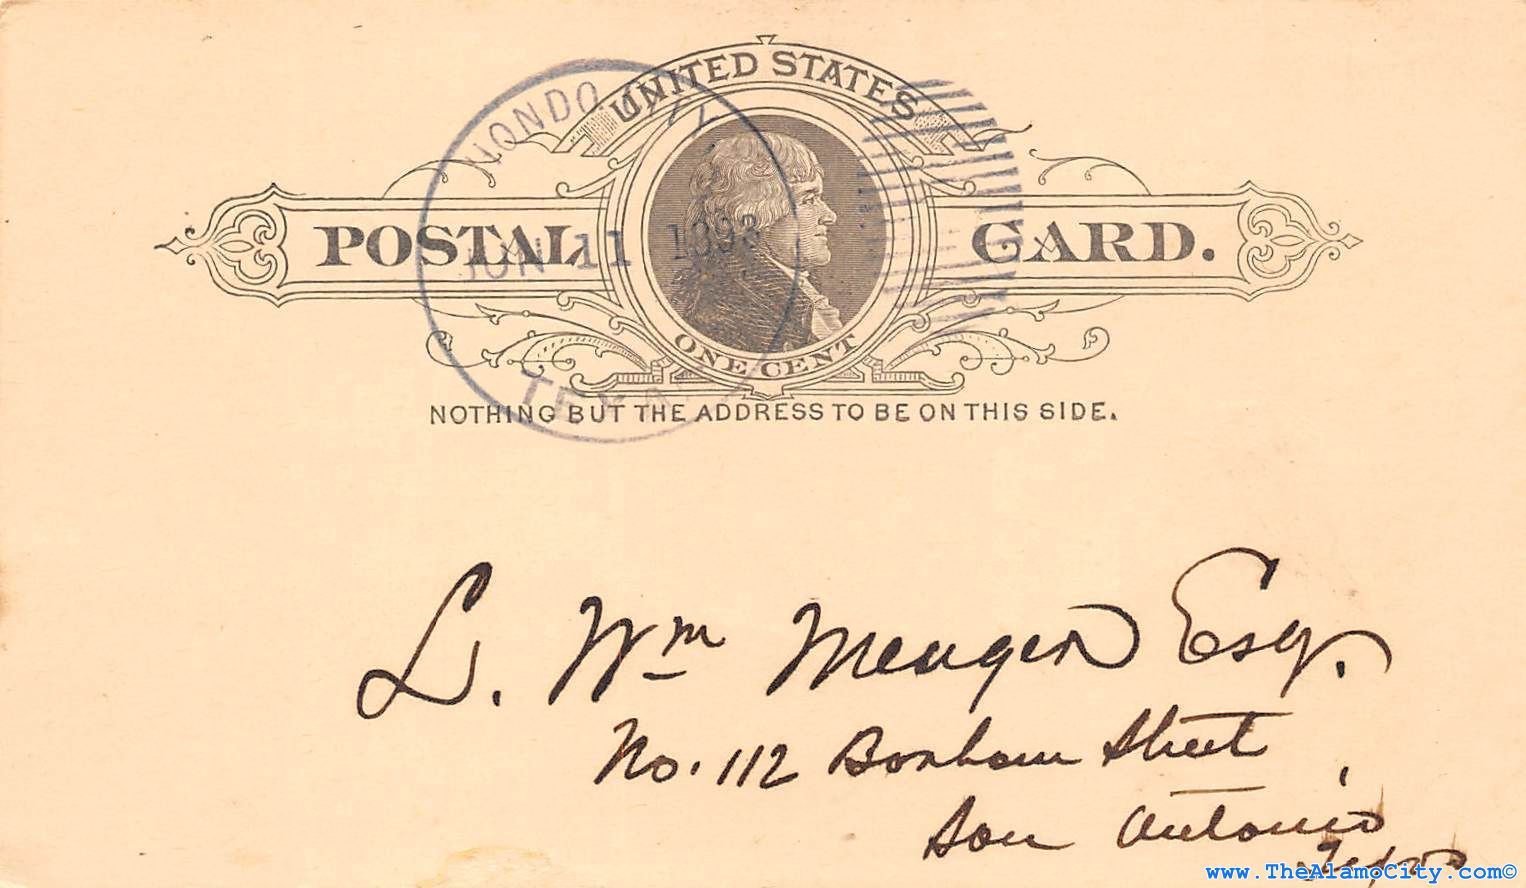 UNITED STATES
POSTAL CARD.
ONE CENT
HONDO
JUN 11 1893
TEXAS
NOTHING BUT THE ADDRESS TO BE ON THIS SIDE.
L. Wm Menger Esq.
No. 112 Bonham Street
San Antonio
Texas
www.TheAlamoCity.com©